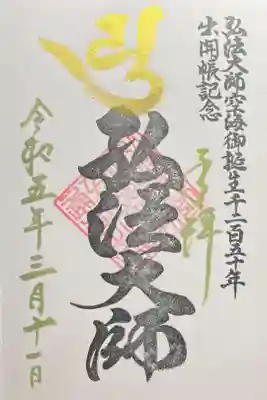 弘法大師空海御誕生千二百五十年
出開帳記念
奉拝
弘法大師
令和五年三月十一日